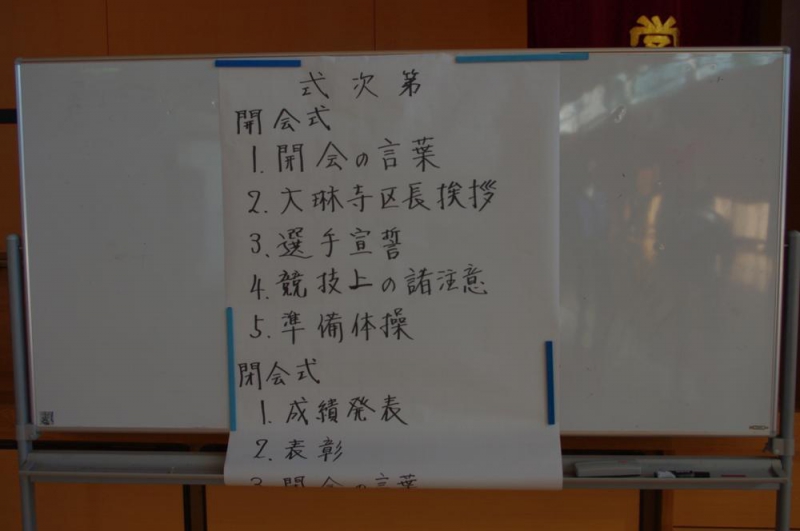 学
式次第
開会式
1. 開会の言葉
2. 大琳寺区長挨拶
3. 選手宣誓
4. 競技上の諸注意
5. 準備体操
閉会式
1. 成績発表
2. 表彰